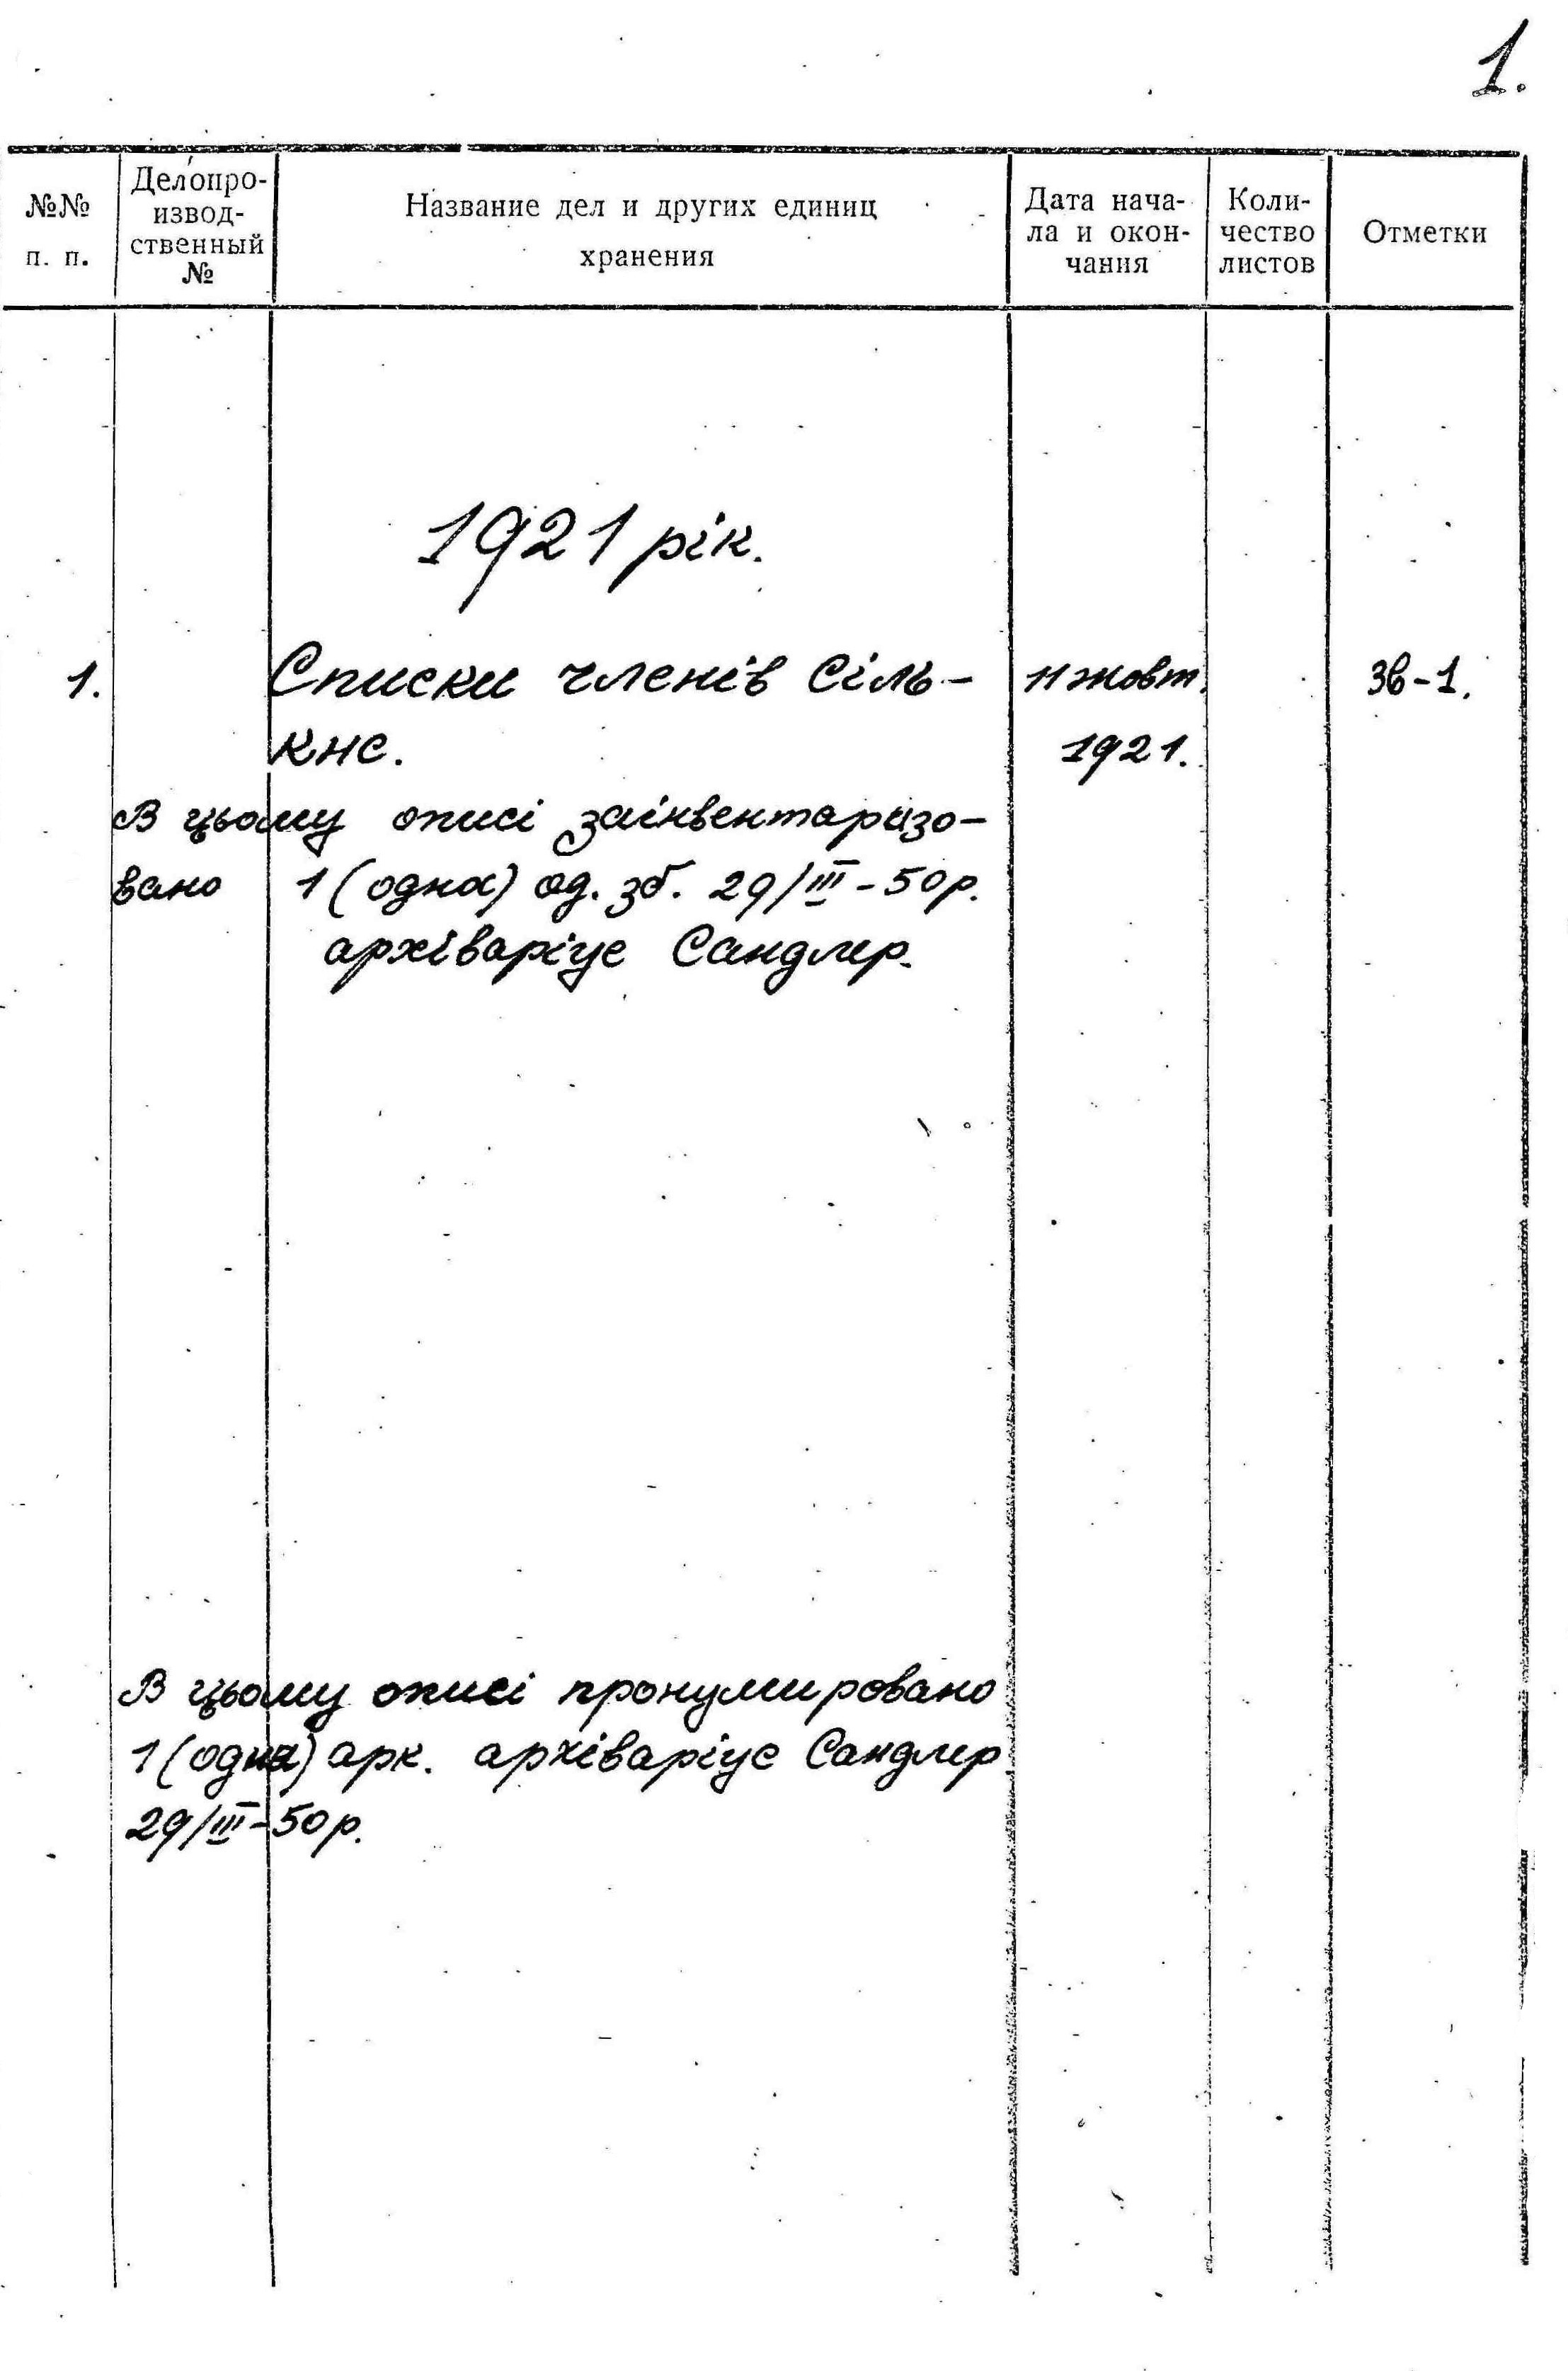 1.
№№
п. п.
Делопро-
извод-
ственный
№
Название дел и других единиц
хранения
Дата нача-
ла и окон-
чания
Коли-
чество
листов
Отметки
1921 рік.
1. Списки членів Сіль- 11 жовт. Зв-1.
КНС. 1921.
В цьому описі заінвентаризо-
вано 1 (одна) од. зб. 29/III-50р.
архіваріус Сандлер.
В цьому описі пронумировано
1 (одна) арк. архіваріус Сандлер
29/III-50р.